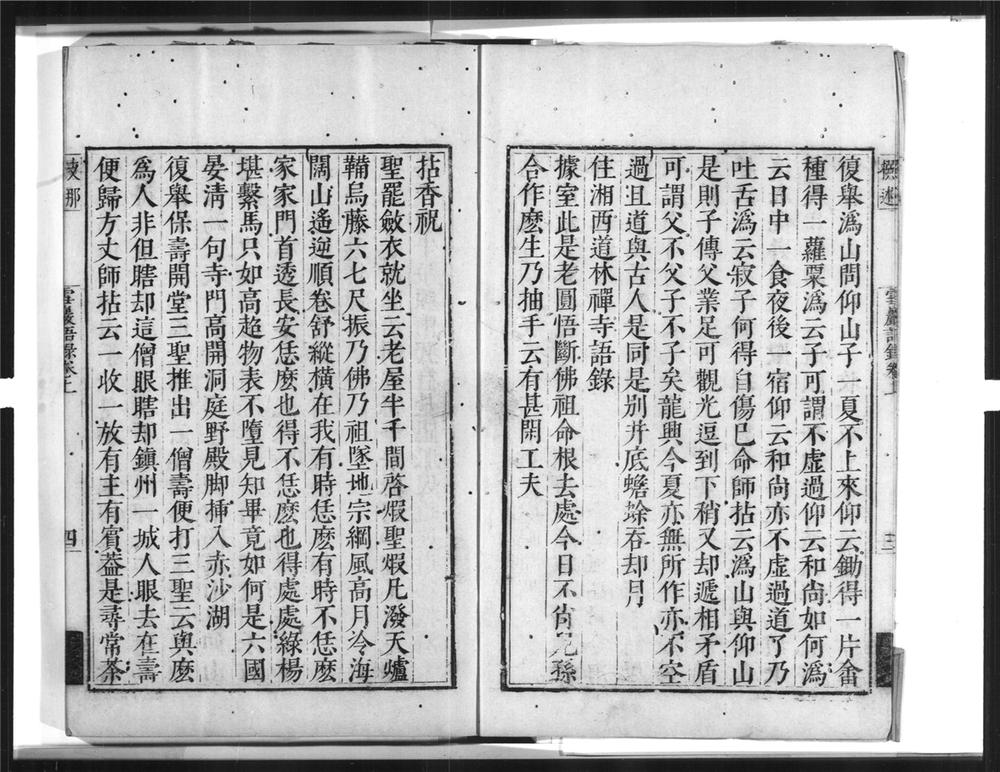 復舉溈山問仰山子一夏不上來仰云鋤得一片畬
種得一籮粟溈云子可謂不虛過仰云和尚如何溈
云日中一食夜後一宿仰云和尚亦不虛過道了乃
吐舌溈云寂子何得自傷己命師拈云溈山與仰山
是則子傳父業足可觀光逗到下稍又却遞相矛盾
可謂父不父子不子矣龍興今夏亦無所作亦不空
過且道與古人是同是別井底蟾蜍吞却月
住湘西道林禪寺語錄
據室此是老圓悟斷佛祖命根去處今日不肖兒孫
合作麼生乃抽手云有甚閑工夫
拈香祝
聖罷斂衣就坐云老屋半千間啓煆聖煆凡潑天爐
鞴烏藤六七尺振乃佛乃祖墜地宗綱風高月冷海
闊山遙逆順卷舒縱橫在我有時恁麽有時不恁麽
家家門首透長安恁麽也得不恁麽也得處處綠楊
堪繫馬只如高超物表不墮見知畢竟如何是六國
晏清一句寺門高開洞庭野殿脚揷入赤沙湖
復舉保壽開堂三聖推出一僧壽便打三聖云與麽
爲人非但瞎却這僧眼瞎却鎭州一城人眼去在壽
便歸方丈師拈云一收一放有主有賓葢是尋常茶
雲巖語錄卷上
四